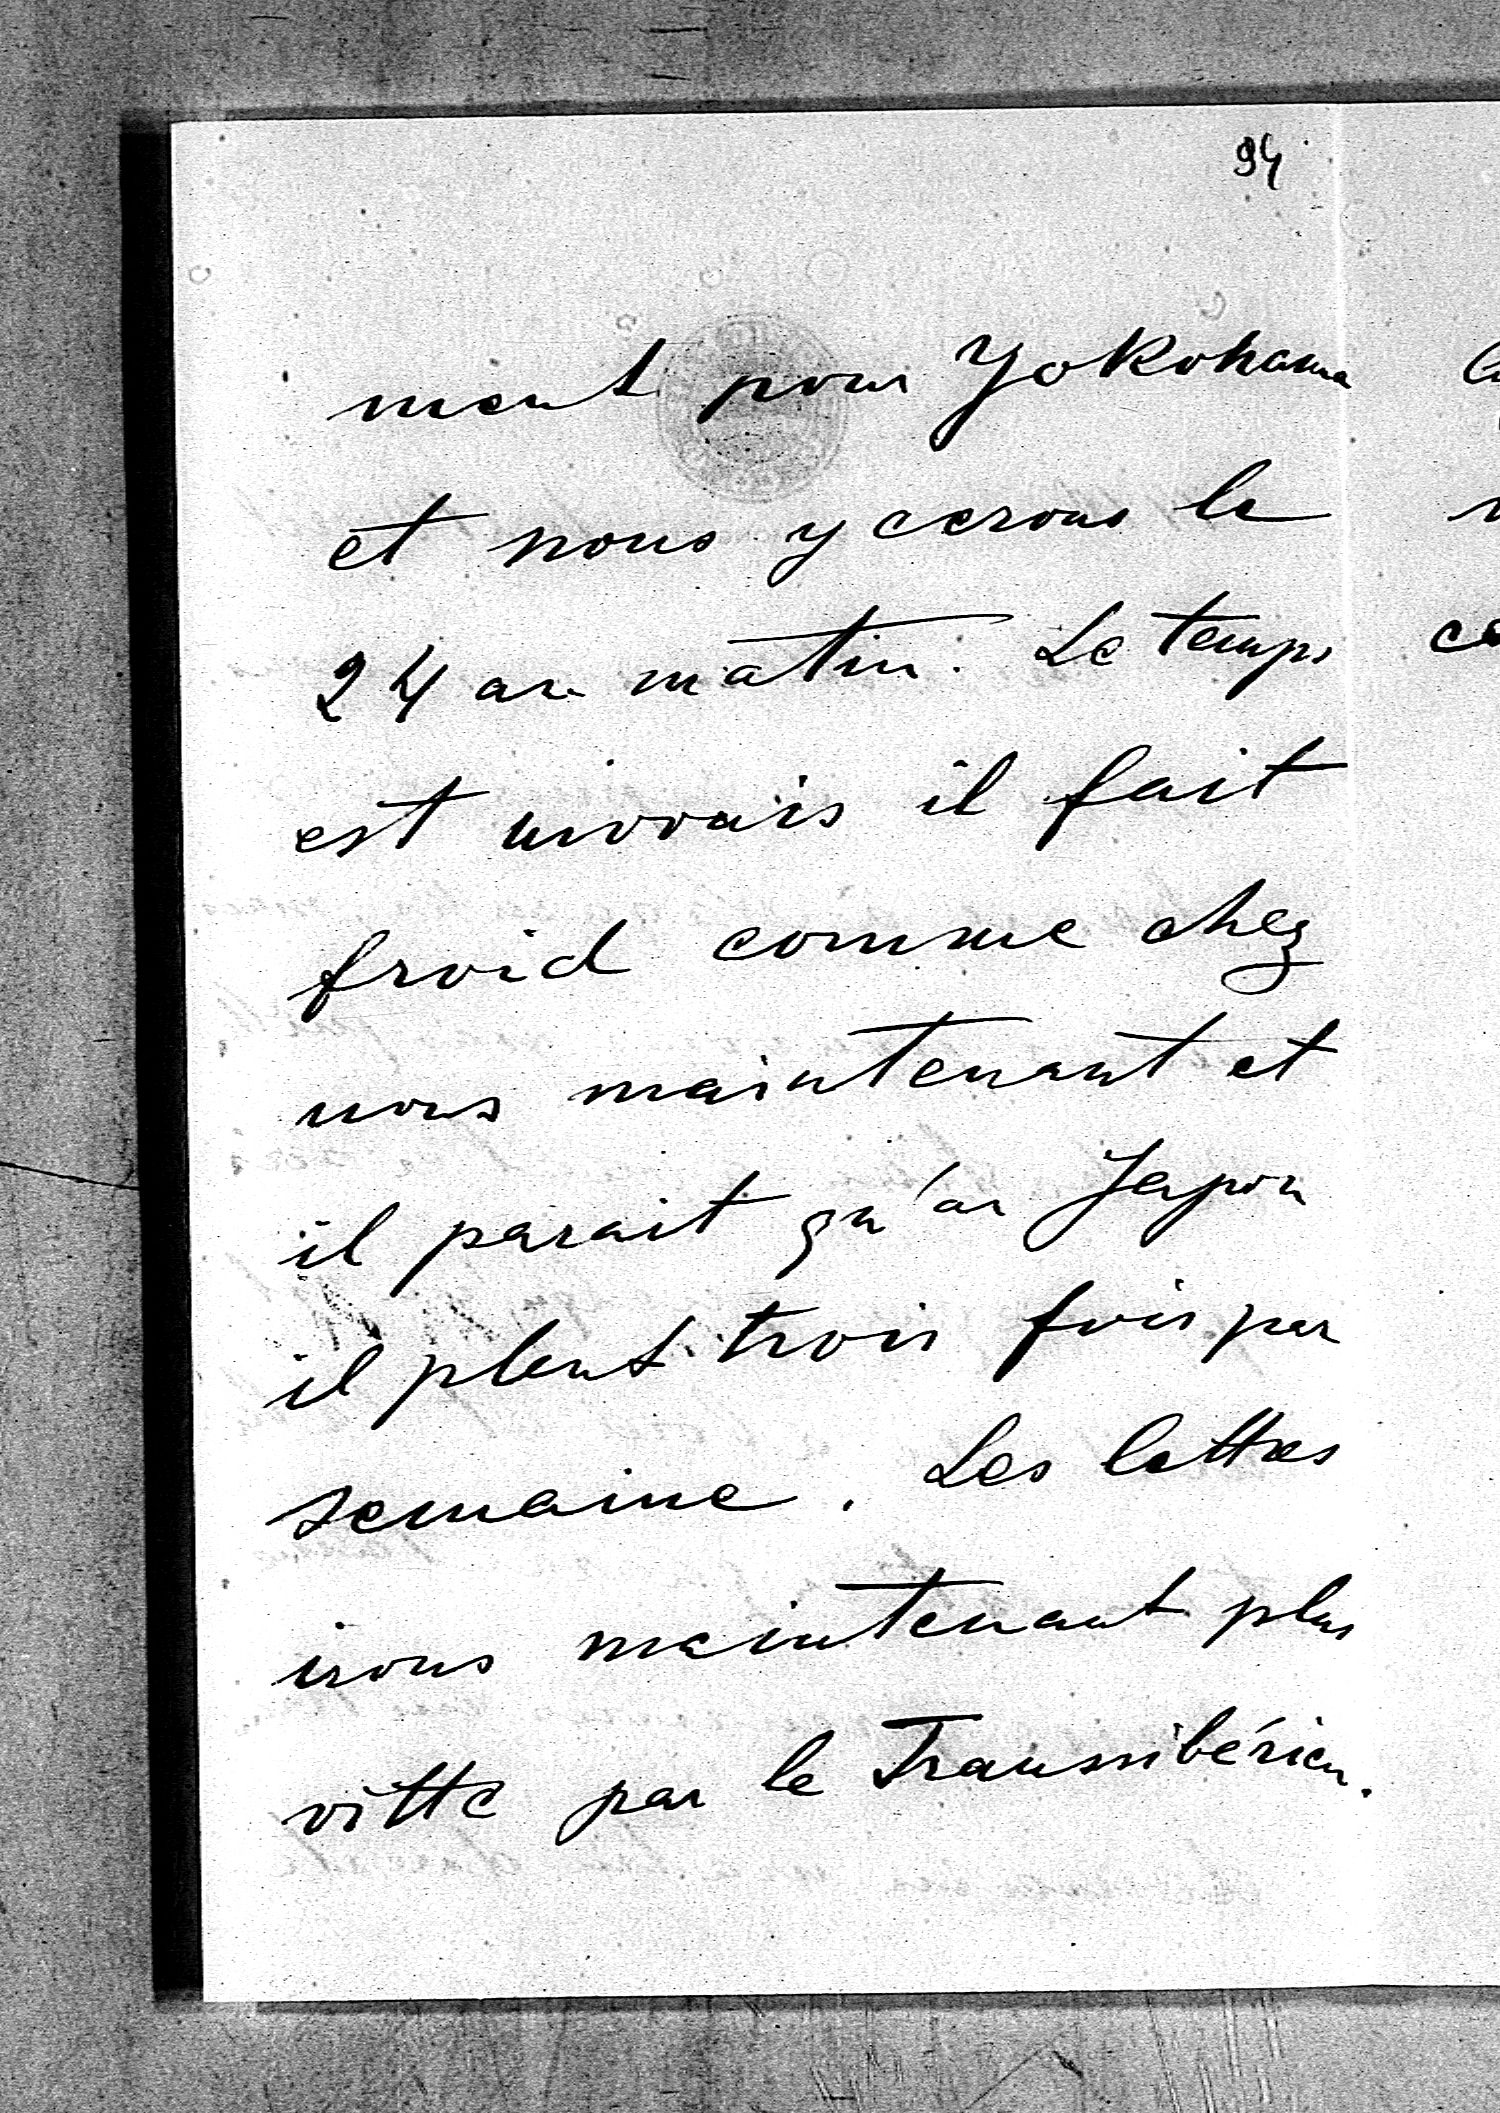 94
ment pour Yokohama
et nous y cerons le
24 au matin. Le temps
est movais il fait
froid comme chez
nous maintenant et
il parait qu'au Japon
il pleut trois fois par
semaine. Les lettres
irons maintenant plus
vitte par le Transsibérien.